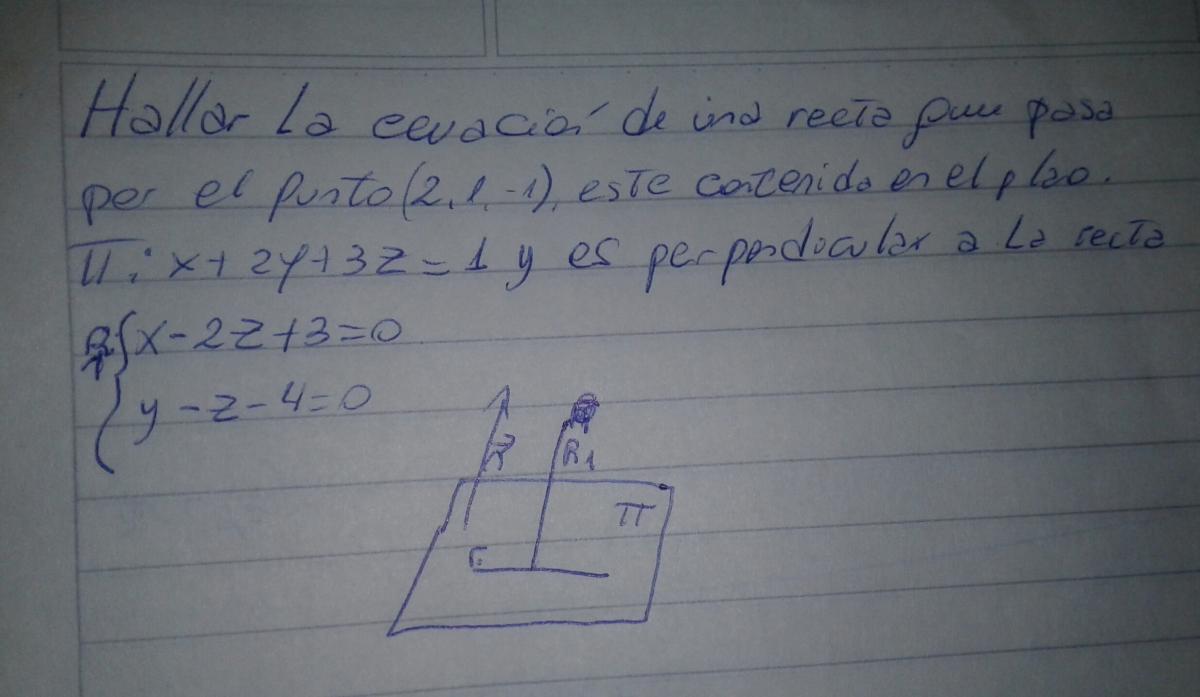 Hallar La ecuación de una recta que pasa
por el punto (2, 1, -1), este contenida en el plao.
π: x + 2y + 3z = 1 y es perpendicular a La recta
R1 { x - 2z + 3 = 0
y - z - 4 = 0
R1
π